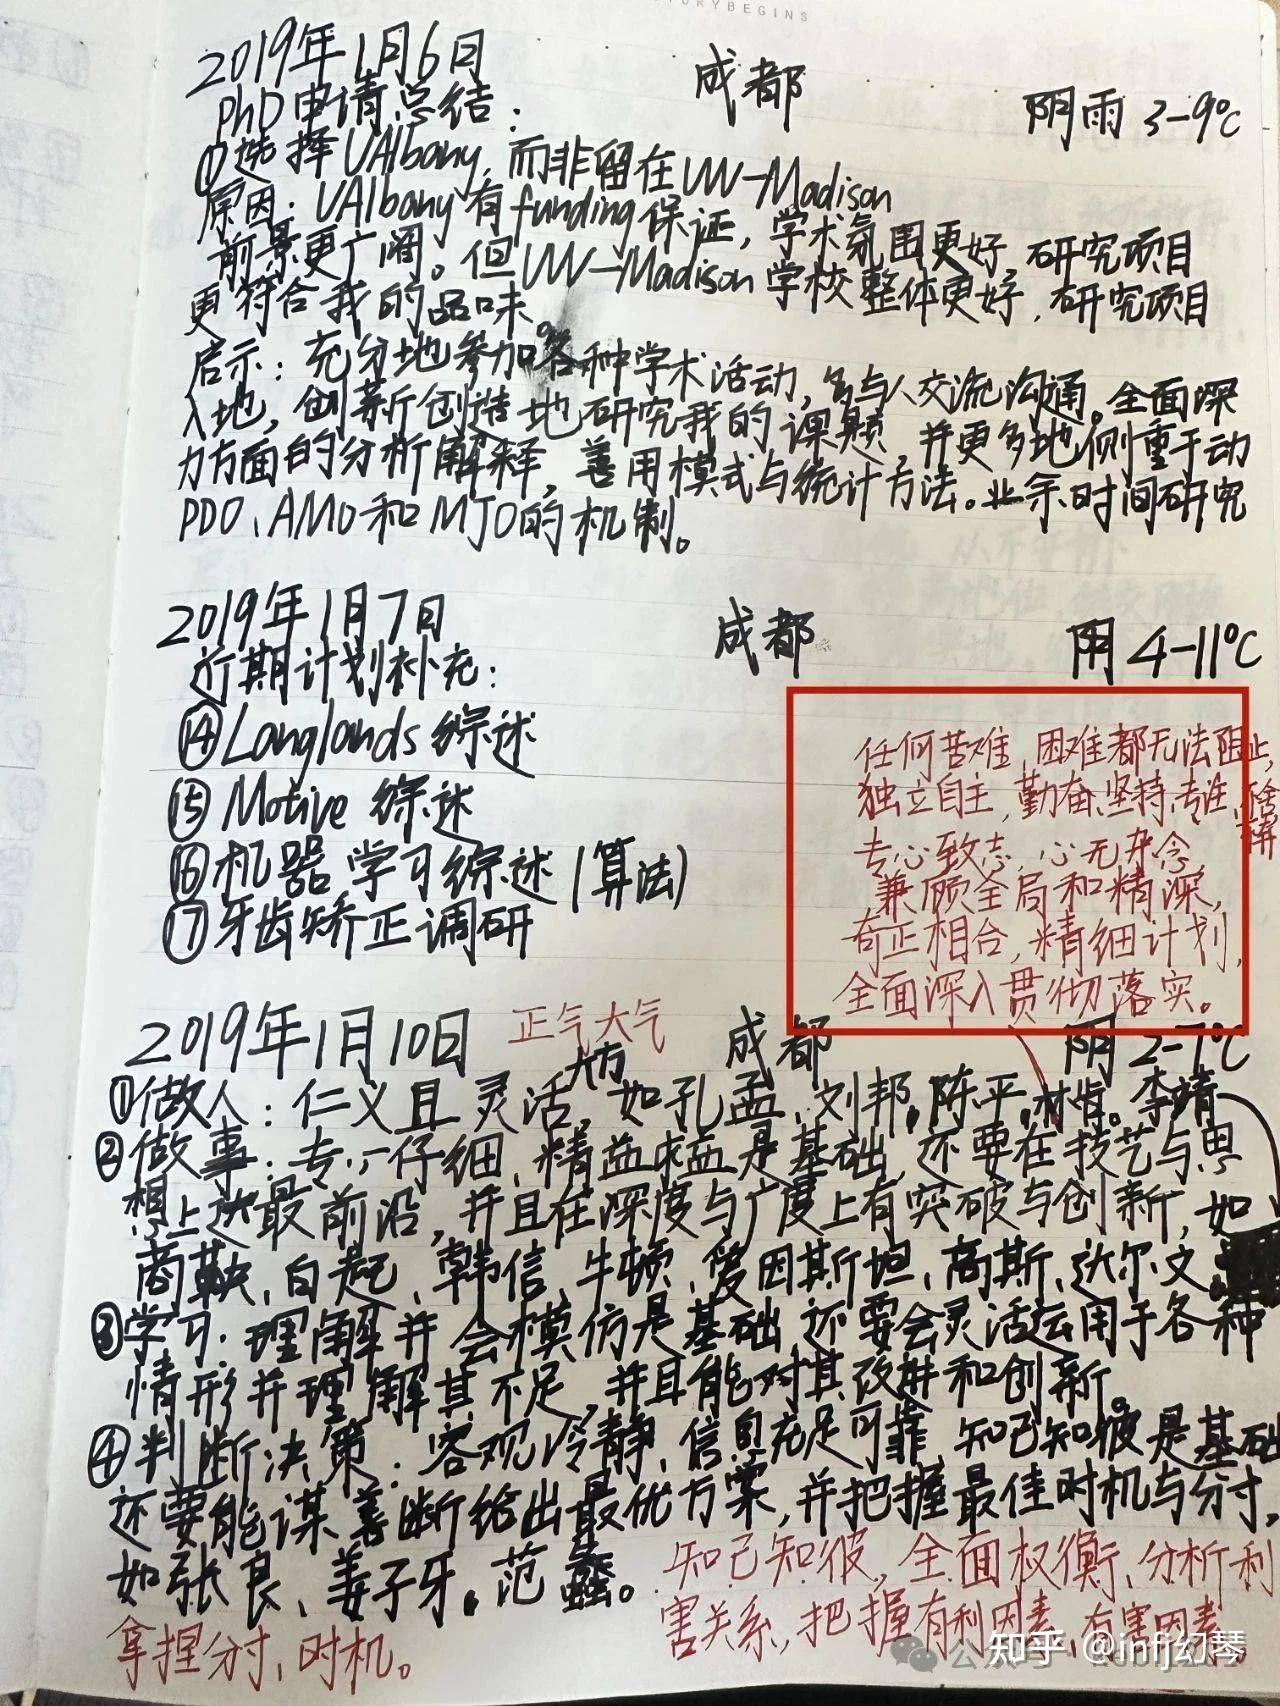 STORYBEGINS
2019年1月6日 成都 阴雨 3-9℃
PhD申请总结：
①选择UAlbany，而非留在UW-Madison
原因：UAlbany有funding保证，学术氛围更好，研究项目
前景更广阔。但UW-Madison学校整体更好，研究项目
更符合我的品味。
启示：充分地参加各种学术活动，多与人交流沟通。全面深
入地，创新创造地研究我的课题，并更多地侧重于动
力方面的分析解释，善用模式与统计方法。业余时间研究
PDO、AMO和MJO的机制。
2019年1月7日 成都 阴 4-11℃
近期计划补充：
⑭Langlands综述
⑮Motive综述
⑯机器学习综述(算法)
⑰牙齿矫正调研
任何苦难，困难都无法阻止，
独立自主，勤奋、坚持、专注，
专心致志，心无杂念，
兼顾全局和精深，
奇正相合，精细计划，
全面深入贯彻落实。
2019年1月10日 正气大气 成都 阴 2-7℃
大方
①做人：仁义且灵活，如孔孟、刘邦，陈平，李靖
②做事：专心仔细，精益求益是基础，还要在技艺与思
想上达最前沿，并且在深度与广度上有突破与创新，如
商鞅，白起，韩信，牛顿，爱因斯坦，高斯，达尔文
③学习：理解并会模仿是基础，还要会灵活运用于各种
情形并理解其不足，并且能对其改进和创新。
④判断决策：客观冷静，信息充足可靠，知己知彼是基础
还要能谋善断给出最优方案，并把握最佳时机与分寸，
如张良、姜子牙，范蠡。
知己知彼，全面权衡，分析利
害关系，把握有利因素，有害因素，
拿捏分寸、时机。
知乎 @infj幻琴